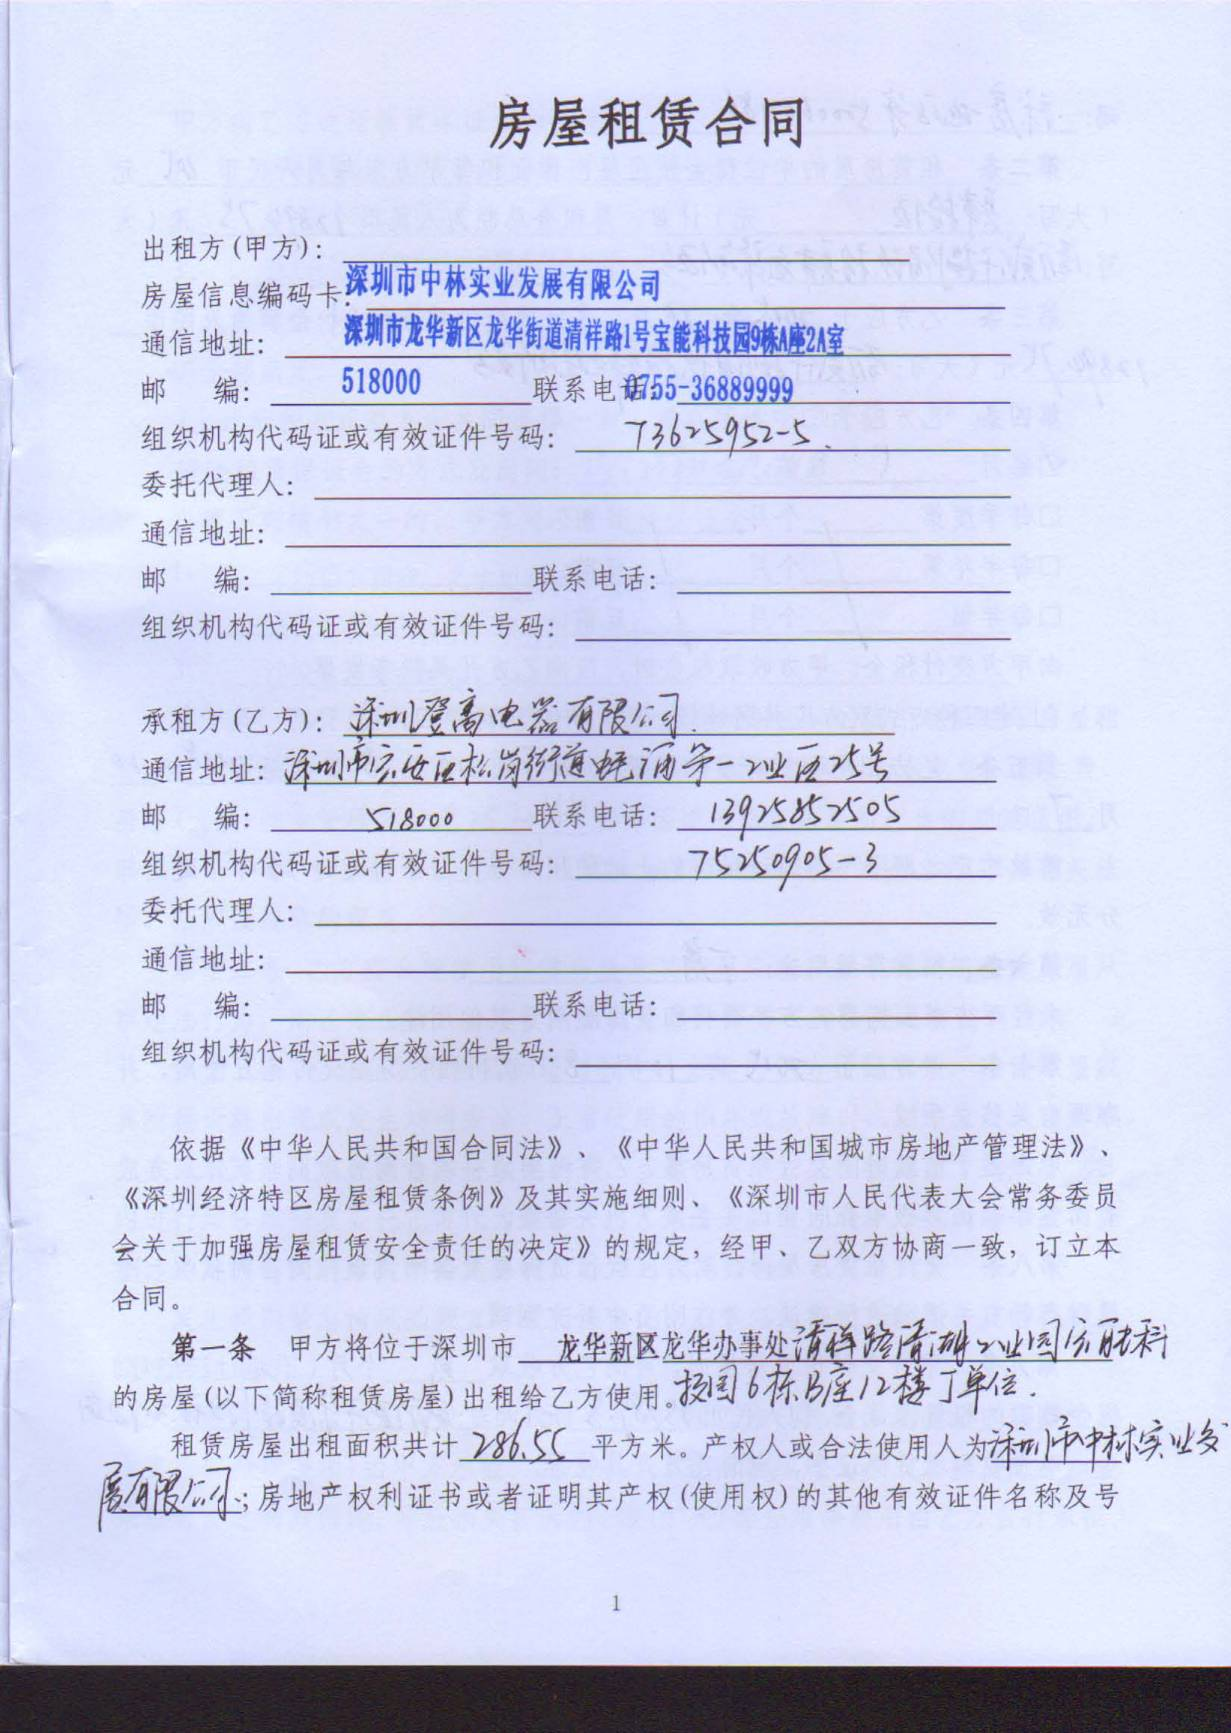 房屋租赁合同
出租方(甲方):
深圳市中林实业发展有限公司
房屋信息编码卡:
通信地址: 深圳市龙华新区龙华街道清祥路1号宝能科技园9栋A座2A室
邮 编: 518000 联系电话: 0755-36889999
组织机构代码证或有效证件号码: 73625952-5
委托代理人:
通信地址:
邮 编: 联系电话:
组织机构代码证或有效证件号码:
承租方(乙方): 深圳登高电器有限公司
通信地址: 深圳市宝安区松岗街道蚝涌第一工业区25号
邮 编: 518000 联系电话: 13925852505
组织机构代码证或有效证件号码: 75250905-3
委托代理人:
通信地址:
邮 编: 联系电话:
组织机构代码证或有效证件号码:
依据《中华人民共和国合同法》、《中华人民共和国城市房地产管理法》、
《深圳经济特区房屋租赁条例》及其实施细则、《深圳市人民代表大会常务委员
会关于加强房屋租赁安全责任的决定》的规定，经甲、乙双方协商一致，订立本
合同。
第一条 甲方将位于深圳市 龙华新区龙华办事处清祥路清湖工业园宝能科
的房屋(以下简称租赁房屋)出租给乙方使用。技园6栋B座12楼J单位.
租赁房屋出租面积共计 286.55 平方米。产权人或合法使用人为深圳市中林实业发
展有限公司;房地产权利证书或者证明其产权(使用权)的其他有效证件名称及号
1